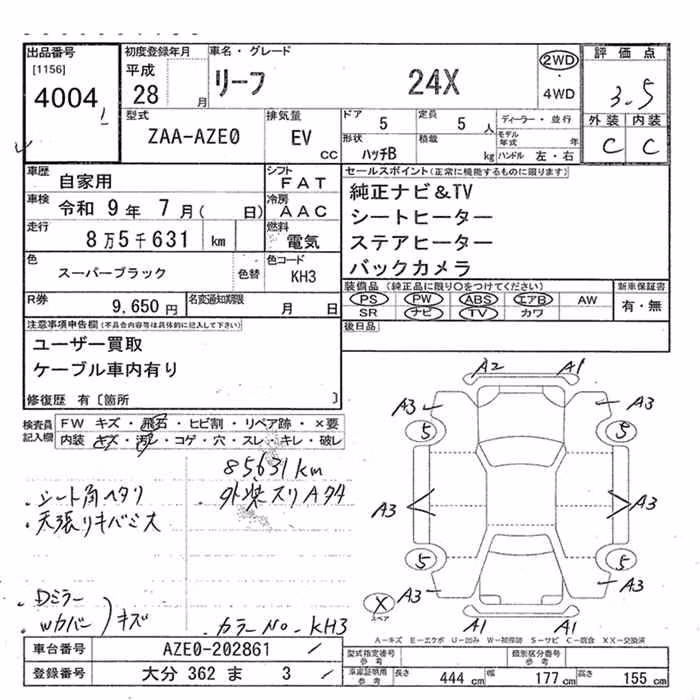 出品番号
[1156]
4004
初度登録年月
平成
28 月
車名・グレード
リーフ 24X
2WD
・
4WD
評価点
3.5
外装 内装
C C
型式
ZAA-AZE0
排気量
EV
CC
ドア 5
定員 5 人
形状 ハッチB
積載 kg
ディーラー・並行
モデル年式 年
ハンドル 左・右
車歴 自家用
車検 令和 9年 7月( 日)
走行 8万5千631 km
シフト FAT
冷房 AAC
燃料 電気
色 スーパーブラック
色替
色コード KH3
R券 9,650 円
名変通知期限 月 日
セールスポイント(正常に機能するものに限ります)
純正ナビ&TV
シートヒーター
ステアヒーター
バックカメラ
装備品(純正品に限り○をつけてください)
PS PW ABS エアB AW
SR ナビ TV カワ
新車保証書
有・無
後日品
注意事項申告欄(不具合内容等は具体的に記入して下さい)
ユーザー買取
ケーブル車内有り
修復歴 有〔箇所 〕
検査員記入欄
FW キズ・飛石・ヒビ割・リペア跡・×要
内装 キズ・汚れ・コゲ・穴・スレ・キレ・破レ
85631km
・シート角ヘタリ
・外装スリA多々
・天張リキバミ大
・Dミラー
・Wカバー
キズ
・カラーNo-KH3
A2 A1
A3 A3
5 5
A3 A3
5 5
A3 A3
X
スペア
A1 A1
A-キズ E-エクボ U-凹み W-補修跡 S-サビ C-腐食 XX-交換済
車台番号 AZE0-202861
登録番号 大分 362 ま 3
型式指定番号 参考
類別区分番号 参考
車庫証明用 参考 長さ 444 cm 幅 177 cm 高さ 155 cm